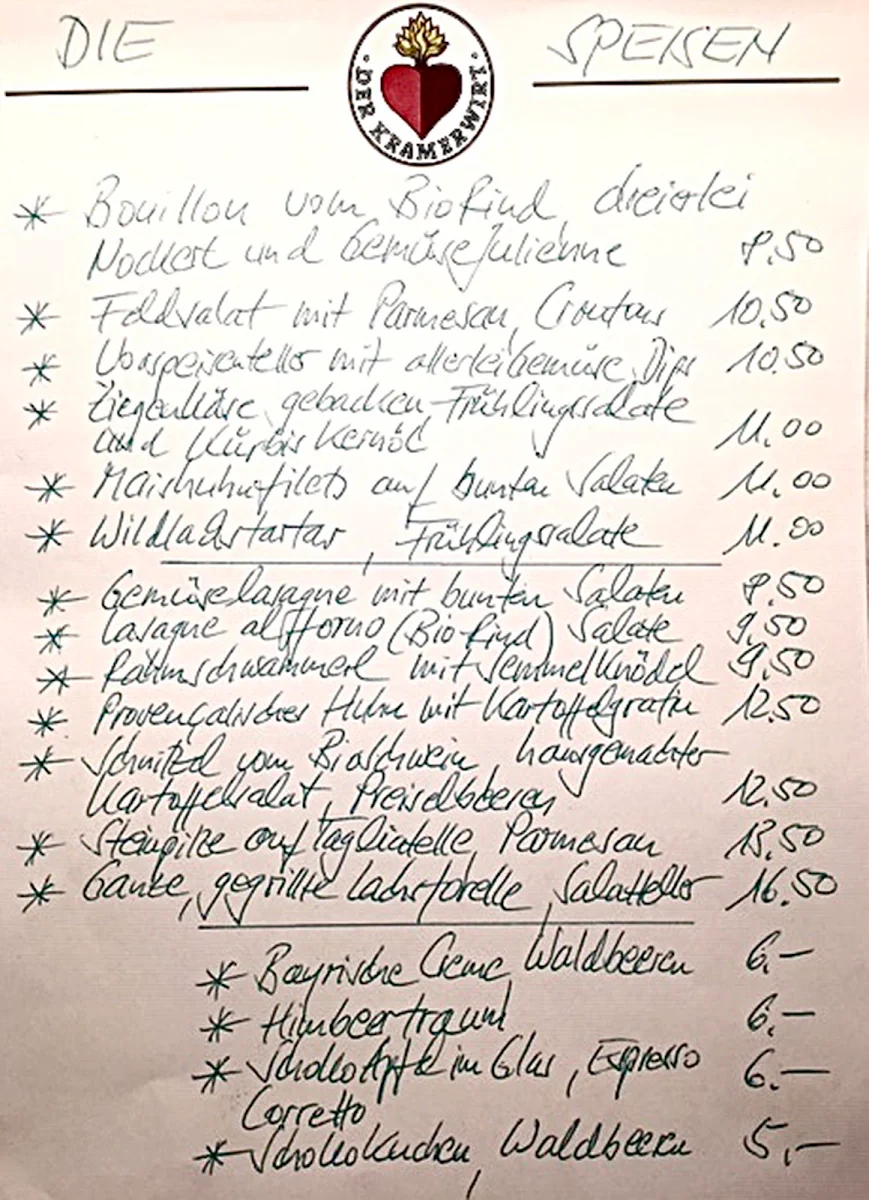 DIE SPEISEN
DER KRAMERWIRT
* Bouillon vom BioRind, dreierlei
Nockerl und GemüseJulienne 8,50
* Feldsalat mit Parmesan, Croutons 10,50
* Vorspeisenteller mit allerlei Gemüse, Dips 10.50
* Ziegenkäse, gebacken, Frühlingssalate
und KürbisKernöl 11,00
* Maishuhnfilets auf bunten Salaten 11,00
* Wildlachstartar, Frühlingssalate 11.00
* Gemüselasagne mit bunten Salaten 8,50
* Lasagne al Forno (Bio-Rind) Salate 9,50
* Rahmschwammerl mit SemmelKnödel 9,50
* Provençalisches Huhn mit Kartoffelgratin 12.50
* Schnitzel vom Bioschwein, hausgemachter
Kartoffelsalat, Preiselbeeren 12.50
* Steinpilze auf Tagliatelle, Parmesan 13,50
* Ganze, gegrillte Lachsforelle, Salatteller 16.50
* Bayrische Creme, Waldbeeren 6.-
* Himbeertraum 6.-
* Schoko im Glas, Espresso 6.-
Corretto
* Schokokuchen, Waldbeeren 5,-